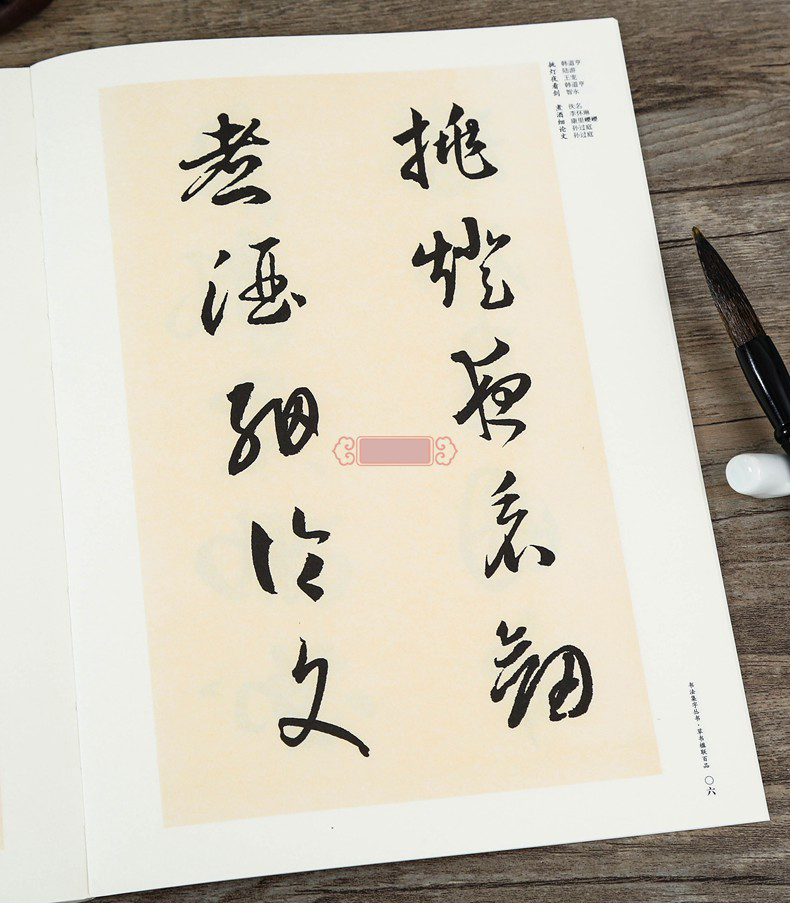 挑燈夜看劍
煮酒細論文
挑灯夜看剑
韩道亨
陆游
王宠
韩道亨
智永
煮酒细论文
佚名
李怀琳
康里巎巎
孙过庭
孙过庭
书法集字丛书·草书楹联百品
〇六